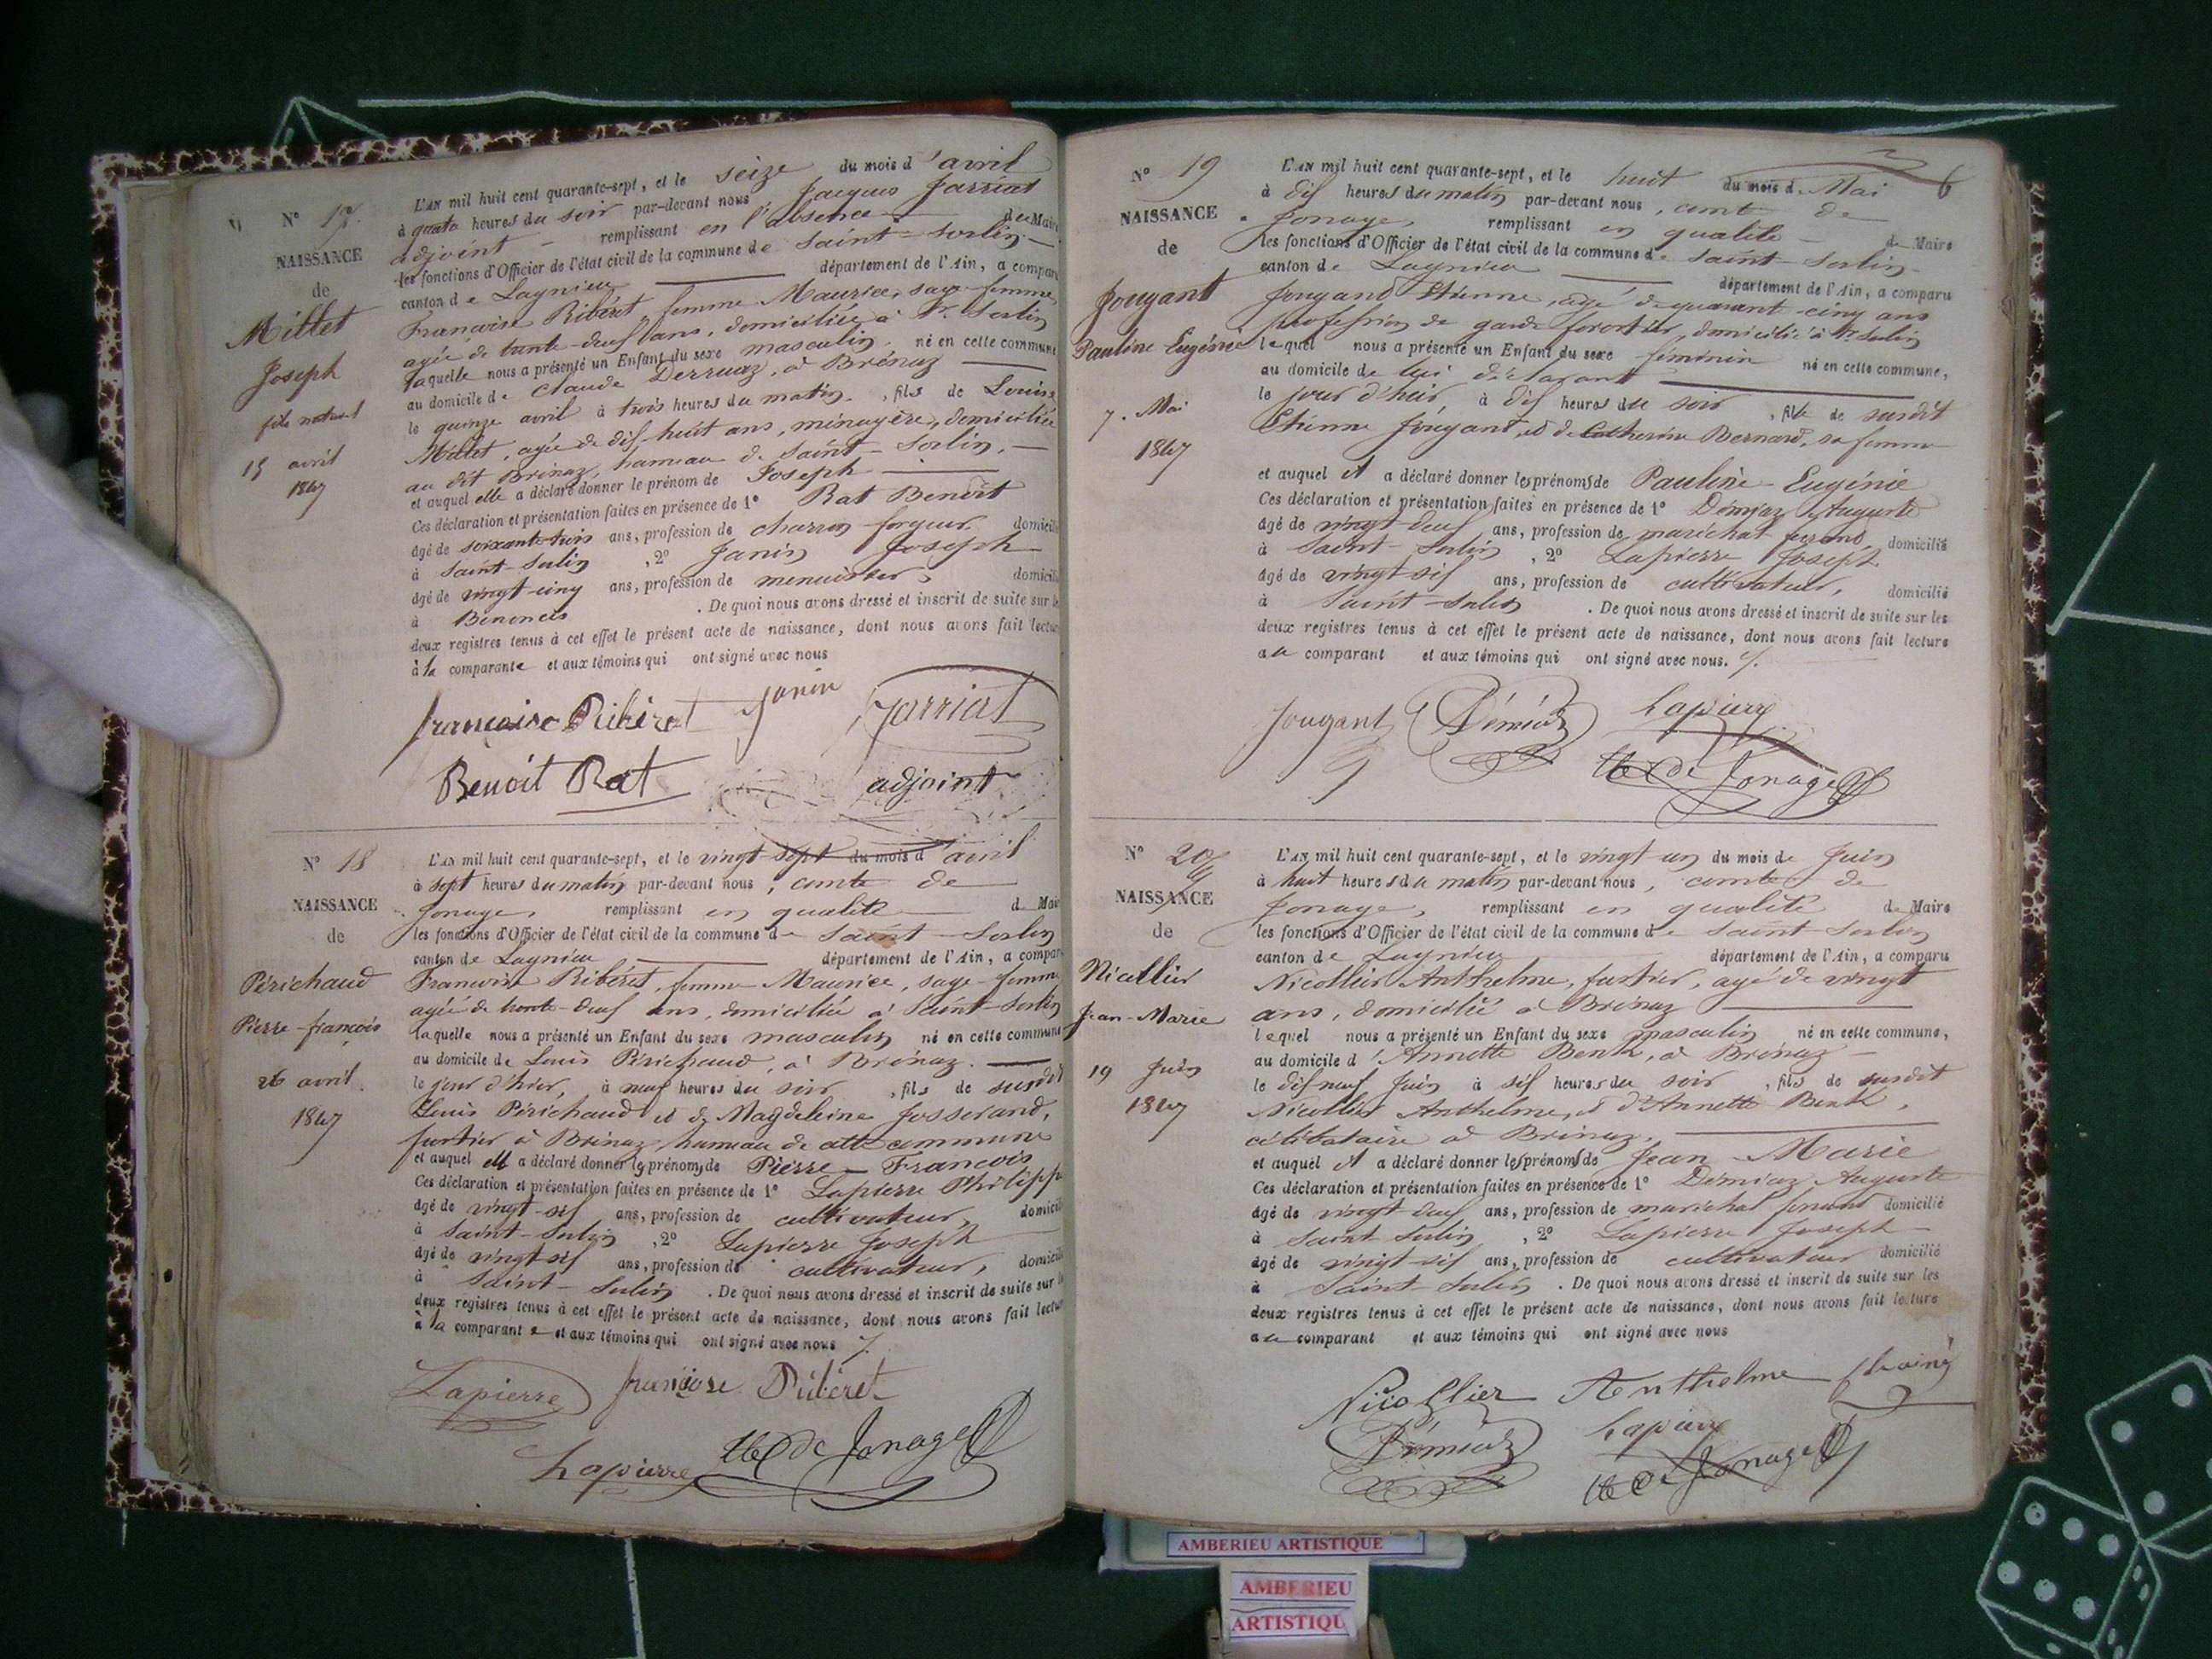 N° 17.
NAISSANCE
de
Millet
Joseph
fils naturel
15 avril
1847
L'AN mil huit cent quarante-sept, et le seize du mois d'avril
à quatre heures du soir par-devant nous Jacques Jarriat
adjoint remplissant en l'absence du Maire
les fonctions d'Officier de l'état civil de la commune de Saint-Sorlin
canton de Lagnieu département de l'Ain, a comparu
Françoise Ribéret, femme Maurice, sage-femme,
agée de trente-deux ans, domiciliée à St. Sorlin
laquelle nous a présenté un Enfant du sexe masculin, né en cette commune
au domicile de Claude Derruaz, à Brénaz
le quinze avril à trois heures du matin, fils de Louise
Millet, agée de dix-huit ans, ménagère, domiciliée
au dit Brénaz, hameau de Saint-Sorlin,
et auquel elle a déclaré donner le prénom de Joseph
Ces déclaration et présentation faites en présence de 1° Rat Benoît
âgé de soixante-trois ans, profession de charron-forgeur, domicilié
à Saint-Sorlin, 2° Janin Joseph
âgé de vingt-cinq ans, profession de menuisier, domicilié
à Bénonces . De quoi nous avons dressé et inscrit de suite sur les
deux registres tenus à cet effet le présent acte de naissance, dont nous avons fait lecture
à la comparante et aux témoins qui ont signé avec nous
françoise Ribéret Janin Jarriat
Benoit Rat adjoint
N° 18
NAISSANCE
de
Périchaud
Pierre-françois
26 avril.
1847
L'AN mil huit cent quarante-sept, et le vingt-sept du mois d'avril
à sept heures du matin par-devant nous, comte de
Jonage, remplissant en qualité de Maire
les fonctions d'Officier de l'état civil de la commune de Saint-Sorlin
canton de Lagnieu département de l'Ain, a comparu
Françoise Ribéret, femme Maurice, sage-femme
agée de trente-deux ans, domiciliée à Saint-Sorlin
laquelle nous a présenté un Enfant du sexe masculin né en cette commune
au domicile de Louis Périchaud, à Brénaz.
le jour d'hier, à neuf heures du soir, fils de susdit
Louis Périchaud et de Magdeleine Josserand,
fustier à Brénaz, hameau de cette commune
et auquel elle a déclaré donner les prénoms de Pierre-François
Ces déclaration et présentation faites en présence de 1° Lapierre Philippe
âgé de vingt-six ans, profession de cultivateur, domicilié
à Saint-Sorlin, 2° Lapierre Joseph
âgé de vingt-six ans, profession de cultivateur, domicilié
à Saint-Sorlin . De quoi nous avons dressé et inscrit de suite sur les
deux registres tenus à cet effet le présent acte de naissance, dont nous avons fait lecture
à la comparante et aux témoins qui ont signé avec nous
Lapierre françoise Ribéret
Lapierre de Jonage
6
N° 19
NAISSANCE
de
Jougant
Pauline Eugénie
7. Mai
1847
L'AN mil huit cent quarante-sept, et le huit du mois de Mai
à dix heures du matin par-devant nous, comte de
Jonage, remplissant en qualité de Maire
les fonctions d'Officier de l'état civil de la commune de Saint-Sorlin
canton de Lagnieu département de l'Ain, a comparu
Jougand Etienne, agé de quarant-cinq ans
profession de garde forestier, domicilié à St. Sorlin
lequel nous a présenté un Enfant du sexe féminin né en cette commune,
au domicile de lui déclarant
le jour d'hier, à dix heures du soir, fille de susdit
Etienne Jougant, et de Catherine Bernard, sa femme
et auquel il a déclaré donner les prénoms de Pauline-Eugénie
Ces déclaration et présentation faites en présence de 1° Démiaz Auguste
âgé de vingt-deux ans, profession de maréchal ferrand, domicilié
à Saint-Sorlin, 2° Lapierre Joseph
âgé de vingt-six ans, profession de cultivateur, domicilié
à Saint-Sorlin . De quoi nous avons dressé et inscrit de suite sur les
deux registres tenus à cet effet le présent acte de naissance, dont nous avons fait lecture
au comparant et aux témoins qui ont signé avec nous.
Jougant Démiaz Lapierre
de Jonage
N° 20
NAISSANCE
de
Nicollier
Jean-Marie
19 Juin
1847
L'AN mil huit cent quarante-sept, et le vingt-un du mois de Juin
à huit heures du matin par-devant nous, comte de
Jonage, remplissant en qualité de Maire
les fonctions d'Officier de l'état civil de la commune de Saint-Sorlin
canton de Lagnieu département de l'Ain, a comparu
Nicollier Anthelme, fustier, agé de vingt
ans, domicilié à Brénaz
lequel nous a présenté un Enfant du sexe masculin né en cette commune,
au domicile d'Annette à Brénaz
le dix neuf Juin à six heures du soir, fils de susdit
Nicollier Anthelme, et d'Annette
célibataire à Brénaz,
et auquel il a déclaré donner les prénoms de Jean-Marie
Ces déclaration et présentation faites en présence de 1° Démiaz Auguste
âgé de vingt-deux ans, profession de maréchal ferrand domicilié
à Saint-Sorlin, 2° Lapierre Joseph
âgé de vingt-six ans, profession de cultivateur domicilié
à Saint-Sorlin . De quoi nous avons dressé et inscrit de suite sur les
deux registres tenus à cet effet le présent acte de naissance, dont nous avons fait lecture
au comparant et aux témoins qui ont signé avec nous
Nicollier Anthelme
Démiaz Lapierre
de Jonage
AMBERIEU ARTISTIQUE
AMBERIEU
ARTISTIQU